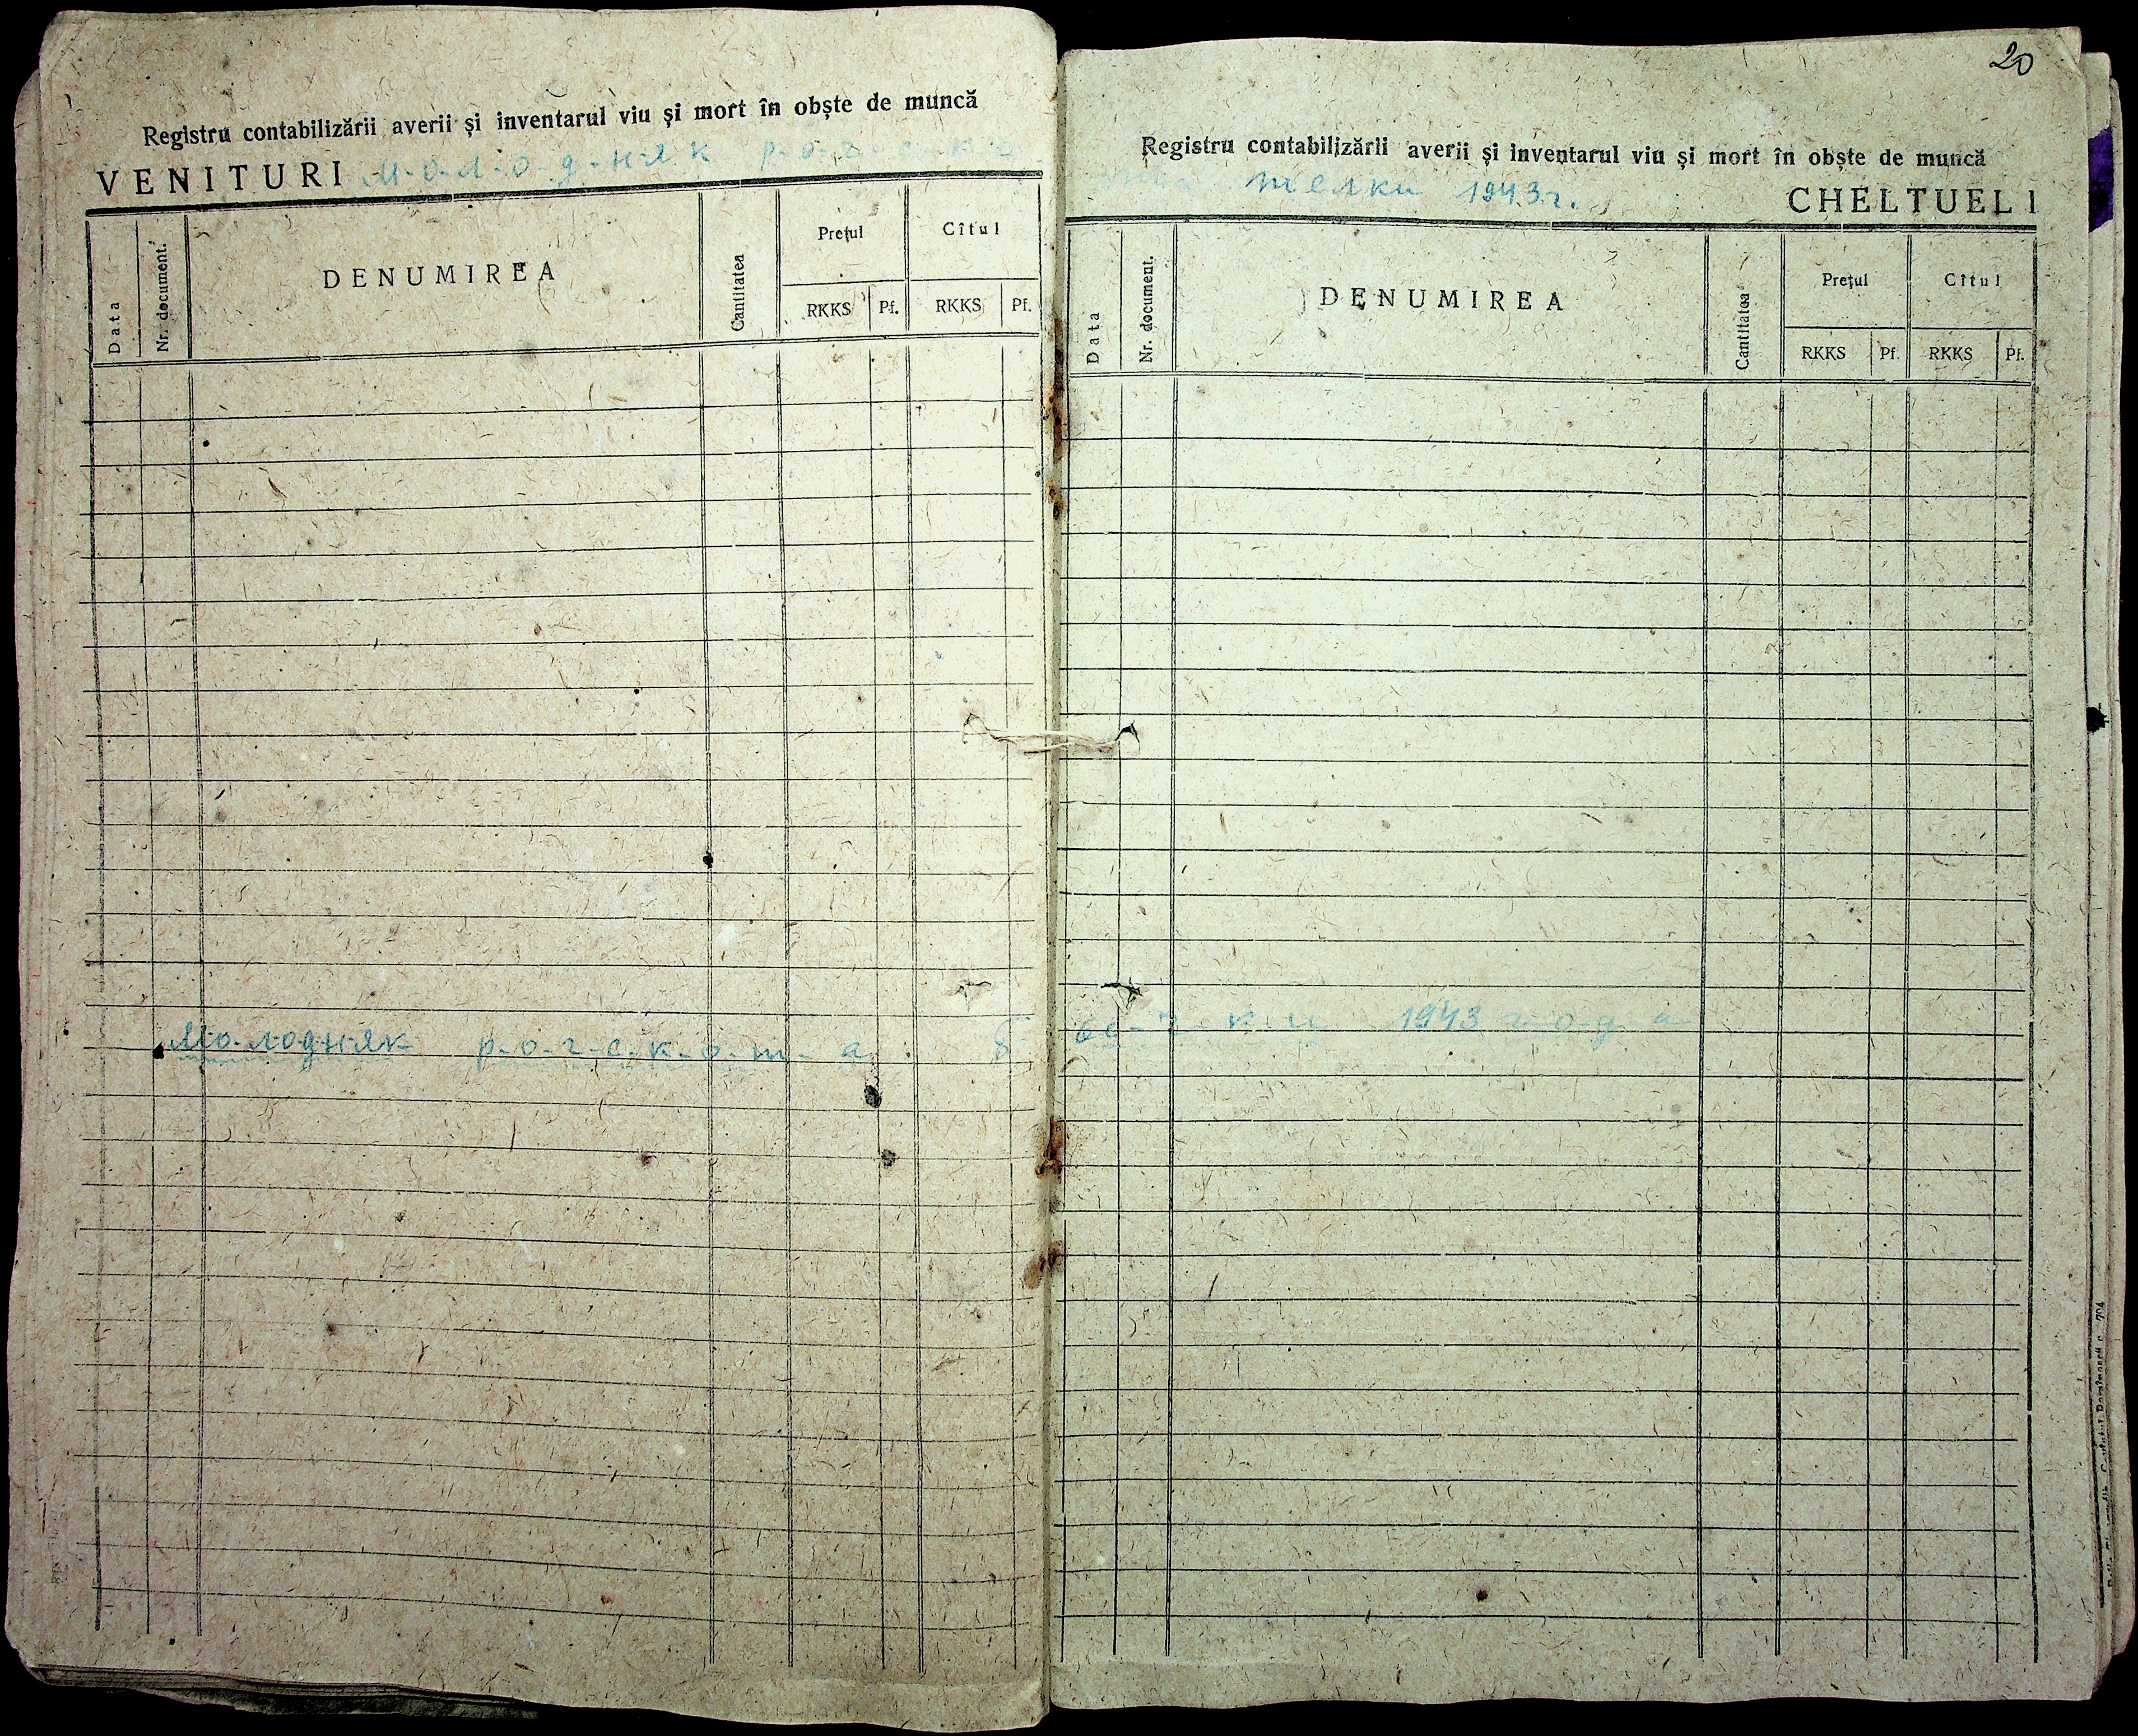 Registru contabilizării averii și inventarul viu și mort în obște de muncă
VENITURI М-о-л-о-д-н-я-к р-о-г-с-к-о
Data
Nr. document.
DENUMIREA
Cantitatea
Prețul
Cîtul
RKKS
Pf.
RKKS
Pf.
Молодняк р-о-г-с-к-о-т-а
20
Registru contabilizării averii și inventarul viu și mort în obște de muncă
телки 1943 г. CHELTUELI
Data
Nr. document.
DENUMIREA
Cantitatea
Prețul
Cîtul
RKKS
Pf.
RKKS
Pf.
1943 г-о-д-а